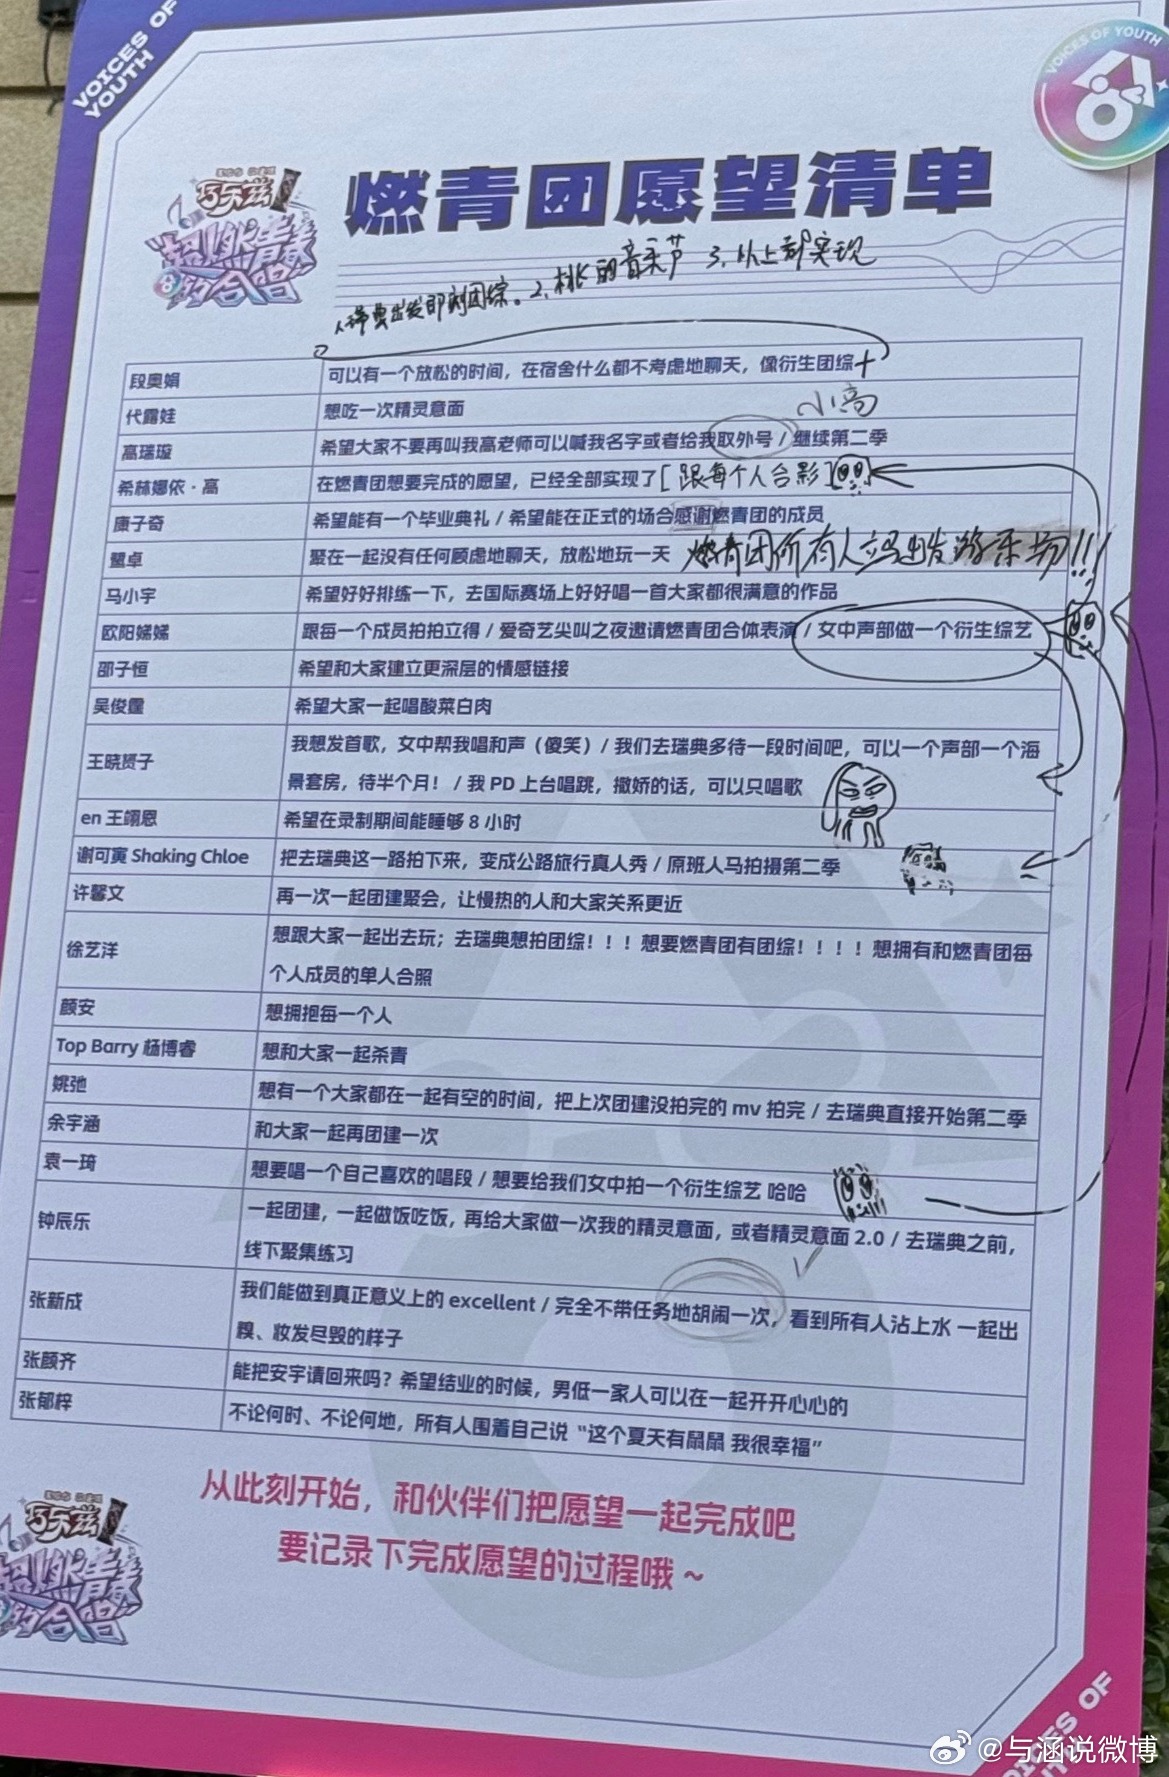 VOICES OF
YOUTH
VOICES OF YOUTH
巧乐兹
超燃青春
的合唱
燃青团愿望清单
2、桃的音乐节 3、以上都实现
段奥娟 可以有一个放松的时间，在宿舍什么都不考虑地聊天，像衍生团综+
代露娃 想吃一次精灵意面
小高
高瑞璇 希望大家不要再叫我高老师可以喊我名字或者给我取外号 / 继续第二季
希林娜依·高 在燃青团想要完成的愿望，已经全部实现了[跟每个人合影]
康子奇 希望能有一个毕业典礼 / 希望能在正式的场合感谢燃青团的成员
鹭卓 聚在一起没有任何顾虑地聊天，放松地玩一天 燃青团所有人立马出发游乐场!!!
马小宇 希望好好排练一下，去国际赛场上好好唱一首大家都很满意的作品
欧阳娣娣 跟每一个成员拍拍立得 / 爱奇艺尖叫之夜邀请燃青团合体表演 / 女中声部做一个衍生综艺
邵子恒 希望和大家建立更深层的情感链接
吴俊霆 希望大家一起唱酸菜白肉
王晓赟子 我想发首歌，女中帮我唱和声（傻笑）/ 我们去瑞典多待一段时间吧，可以一个声部一个海
景套房，待半个月！ / 我 PD 上台唱跳，撒娇的话，可以只唱歌
en 王翊恩 希望在录制期间能睡够 8 小时
谢可寅 Shaking Chloe 把去瑞典这一路拍下来，变成公路旅行真人秀 / 原班人马拍摄第二季
许馨文 再一次一起团建聚会，让慢热的人和大家关系更近
徐艺洋 想跟大家一起出去玩；去瑞典想拍团综！！！想要燃青团有团综！！！！想拥有和燃青团每
个人成员的单人合照
颜安 想拥抱每一个人
Top Barry 杨博睿 想和大家一起杀青
姚弛 想有一个大家都在一起有空的时间，把上次团建没拍完的 mv 拍完 / 去瑞典直接开始第二季
余宇涵 和大家一起再团建一次
袁一琦 想要唱一个自己喜欢的唱段 / 想要给我们女中拍一个衍生综艺 哈哈
钟辰乐 一起团建，一起做饭吃饭，再给大家做一次我的精灵意面，或者精灵意面 2.0 / 去瑞典之前，
线下聚集练习
张新成 我们能做到真正意义上的 excellent / 完全不带任务地胡闹一次，看到所有人沾上水 一起出
糗、妆发尽毁的样子
张颜齐 能把安宇请回来吗？希望结业的时候，男低一家人可以在一起开开心心的
张郁梓 不论何时、不论何地，所有人围着自己说“这个夏天有鼠鼠 我很幸福”
从此刻开始，和伙伴们把愿望一起完成吧
要记录下完成愿望的过程哦～
巧乐兹
超燃青春
的合唱
VOICES OF
@与涵说微博